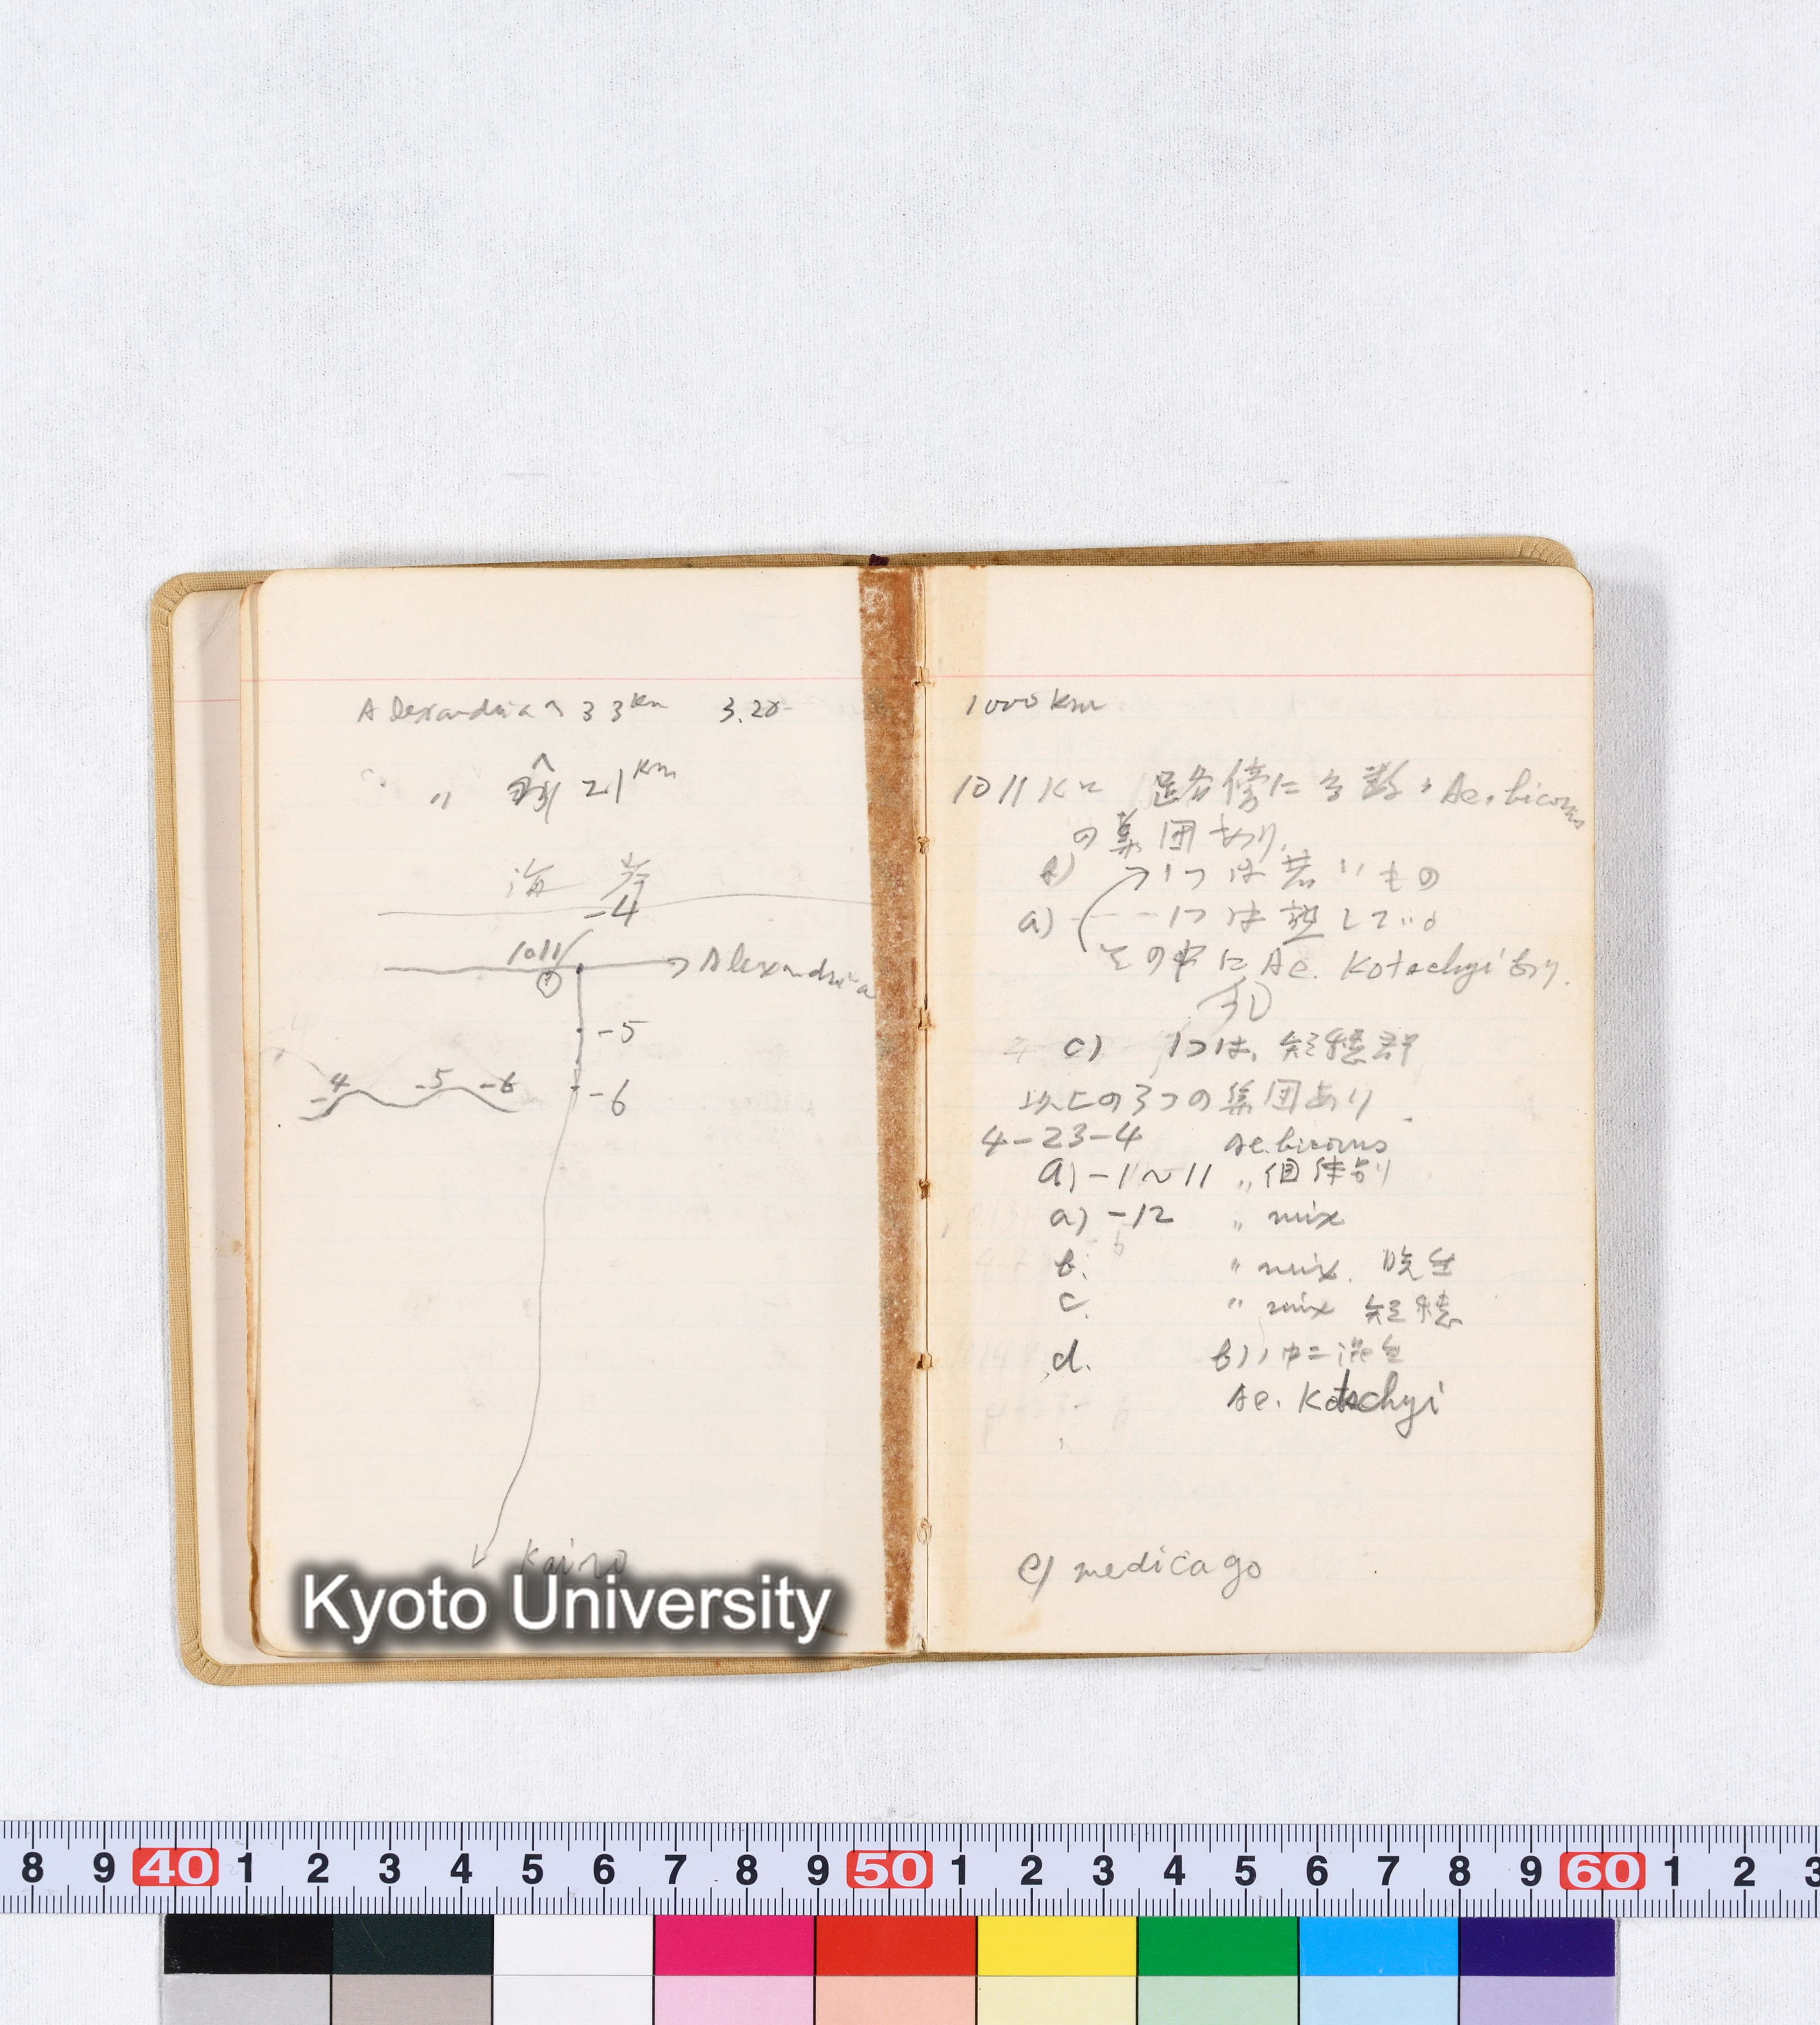 Alexandria へ 33 km 3.20
〃 前 21 km
海岸
-4
1011
→ Alexandria
-5
-4 -5 -6
-6
Kairo
Kyoto University
1000 km
1011 Km 路傍に多数ノ Ae. bicornis
の集団あり.
b) 1つは若いもの
a) 1つは熟している
その中に Ae. Kotschyi あり.
c) 1つは, 短穂群
以上の3つの集団あり.
4-23-4 Ae. bicornis
a) -1~11 〃 個体別
a) -12 〃 mix
b. 〃 mix. 晩生
c. 〃 mix 短穂
d. b)ノ中ニ混生
Ae. Kotschyi
e) medicago
8 9 40 1 2 3 4 5 6 7 8 9 50 1 2 3 4 5 6 7 8 9 60 1 2 3